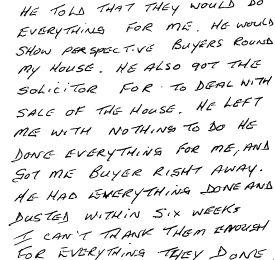 HE TOLD THAT THEY WOULD DO
EVERYTHING FOR ME. HE WOULD
SHOW PERSPECTIVE BUYERS ROUND
MY HOUSE. HE ALSO GOT THE
SOLICITOR FOR TO DEAL WITH
SALE OF THE HOUSE. HE LEFT
ME WITH NOTHING TO DO HE
DONE EVERYTHING FOR ME, AND
GOT ME BUYER RIGHT AWAY.
HE HAD EVERYTHING DONE AND
DUSTED WITHIN SIX WEEKS
I CAN'T THANK THEM ENOUGH
FOR EVERYTHING THEY DONE.